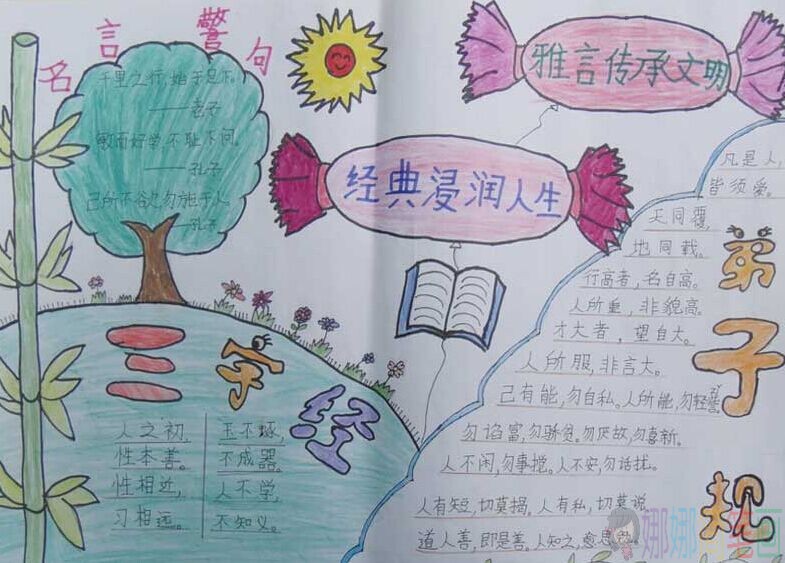 名言警句
千里之行,始于足下。
——老子
敏而好学,不耻下问。
——孔子
己所不欲,勿施于人。
——孔子
雅言传承文明
经典浸润人生
三字经
人之初,
性本善。
性相近,
习相远。
玉不琢,
不成器。
人不学,
不知义。
弟子规
凡是人,
皆须爱。
天同覆,
地同载。
行高者,名自高。
人所重,非貌高。
才大者,望自大。
人所服,非言大。
己有能,勿自私。人所能,勿轻訾。
勿谄富,勿骄贫。勿厌故,勿喜新。
人不闲,勿事搅。人不安,勿话扰。
人有短,切莫揭,人有私,切莫说
道人善,即是善。人知之,愈思
娜娜